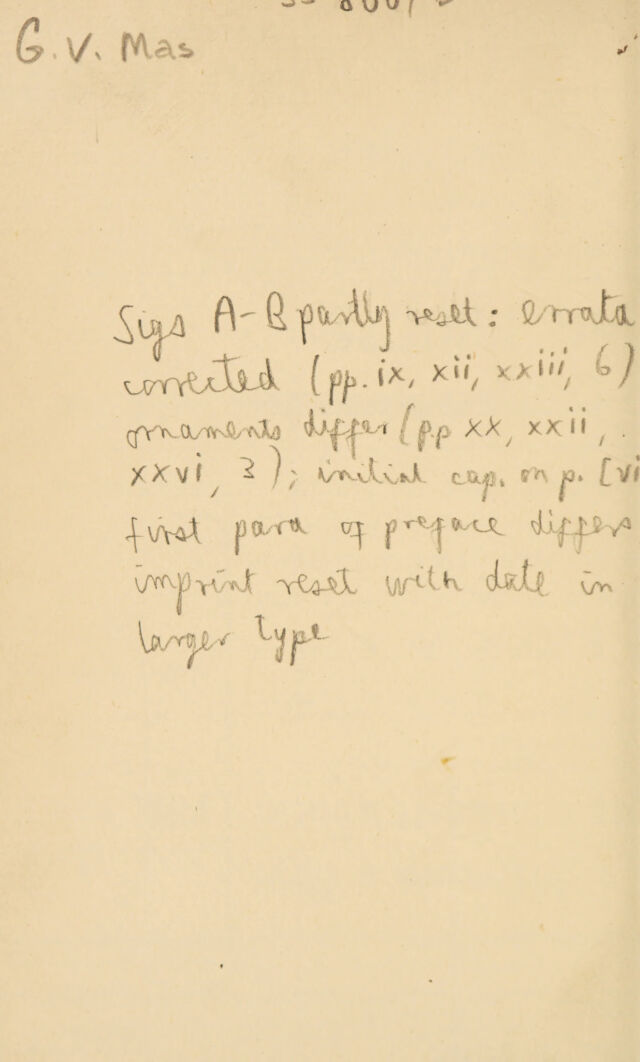 G. V. Mas
Sigs A-B partly reset: errata
corrected (pp. ix, xii, xxiii, 6)
ornaments differ (pp xx, xxii,
xxvi, 3); initial cap. on p. [vi
first para of preface differs
imprint reset with date in
larger type